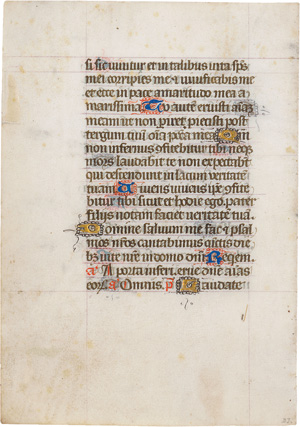 si sic vivitur et in talibus vita sps
mei corripies me et vivificabis me
et ecce in pace amaritudo mea a
marissima Tu autē eruisti aīaz
meam ut non periret proiecisti post
tergum tuū oīa pccā mea Quia
non infernus cōfitebitur tibi neqz
mors laudabit te non expectabūt
qui descendunt in lacum veritatē
tuam Vivens vivens ipe cōfite
bitur tibi sicut et hodie ego pater
filiis notam faciet veritatē tuā
Domine salvum me fac et psal
mos nrōs cantabimus cūctis die
bz vite nrē in domo dnī Requiem
A porta inferi erue dnē aīas
eorz Omnis Laudate